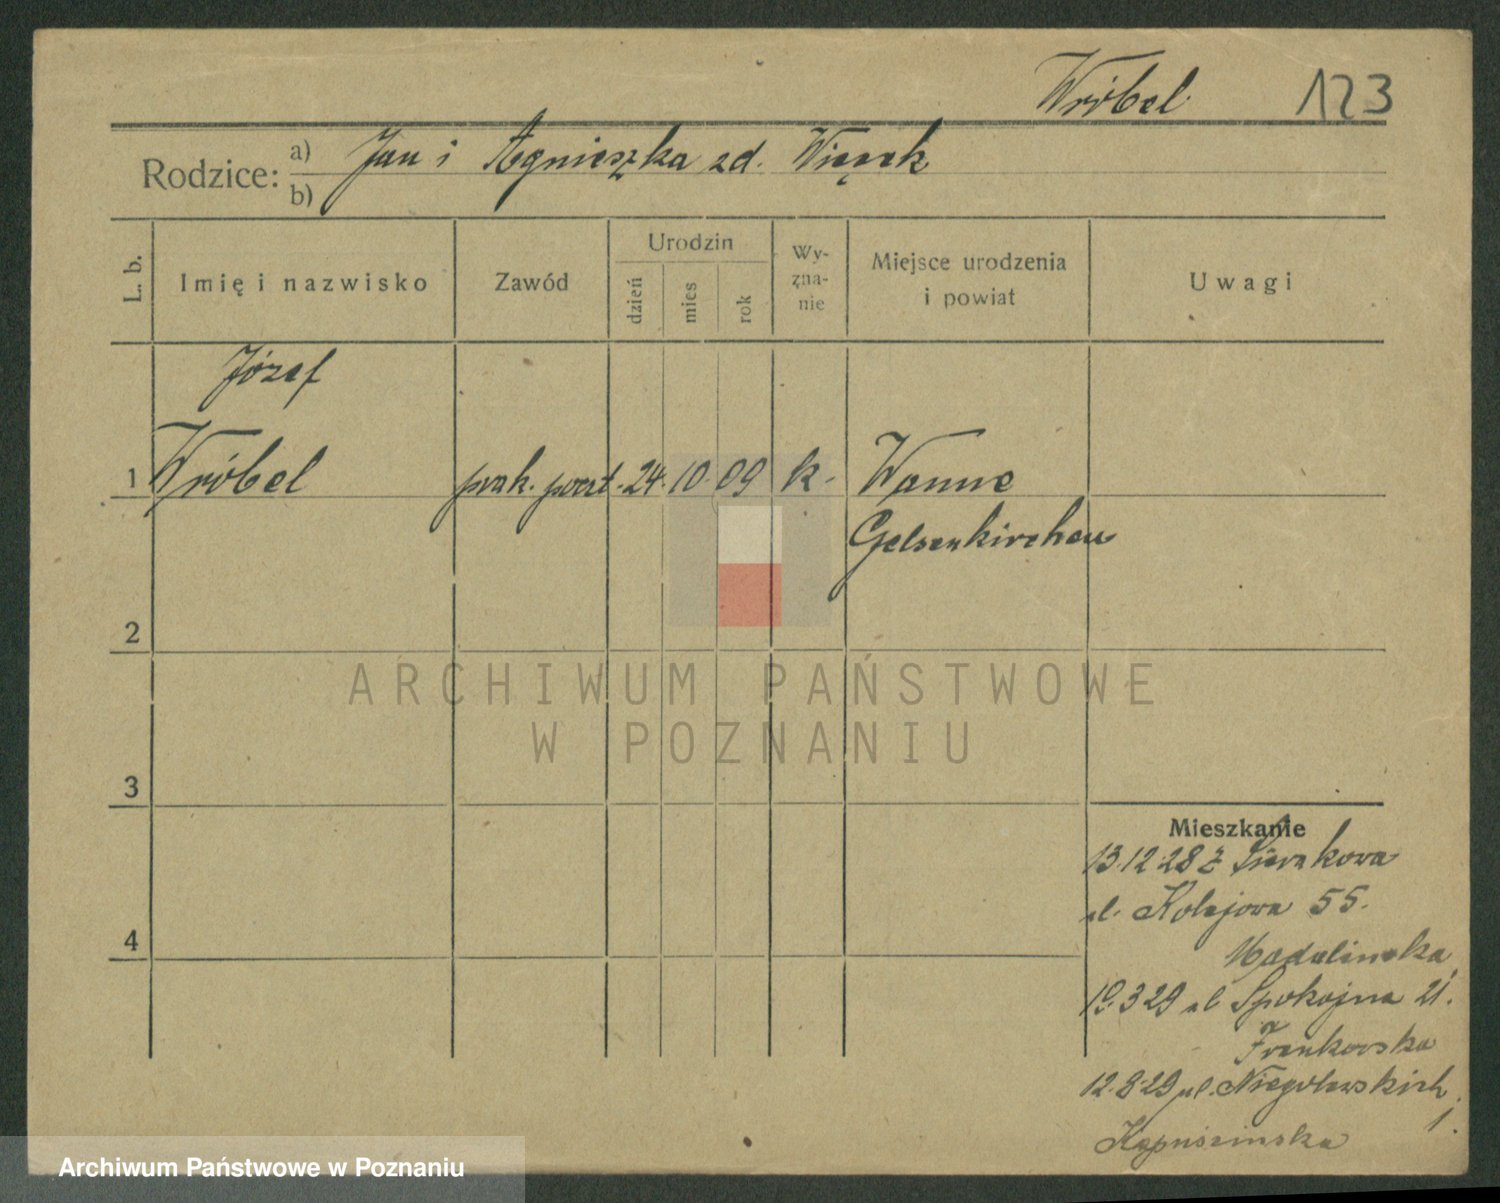 Wróbel 123
Rodzice: a) Jan i Agnieszka zd. Więcek
b)
L. b.
Imię i nazwisko
Zawód
Urodzin
dzień
mies
rok
Wy-
zna-
nie
Miejsce urodzenia
i powiat
Uwagi
Józef
1 Wróbel prak. poczt. 24. 10. 09 k. Wanne
Gelsenkirchen
2
ARCHIWUM PAŃSTWOWE
W POZNANIU
3
Mieszkanie
13.12.28 z Sierakowa
ul. Kolejowa 55.
4
Madalinska
19.3.29 ul Spokojna 21.
Frankowska
12.8.29 ul. Niegolewskich
1.
Kapuscinska
Archiwum Państwowe w Poznaniu